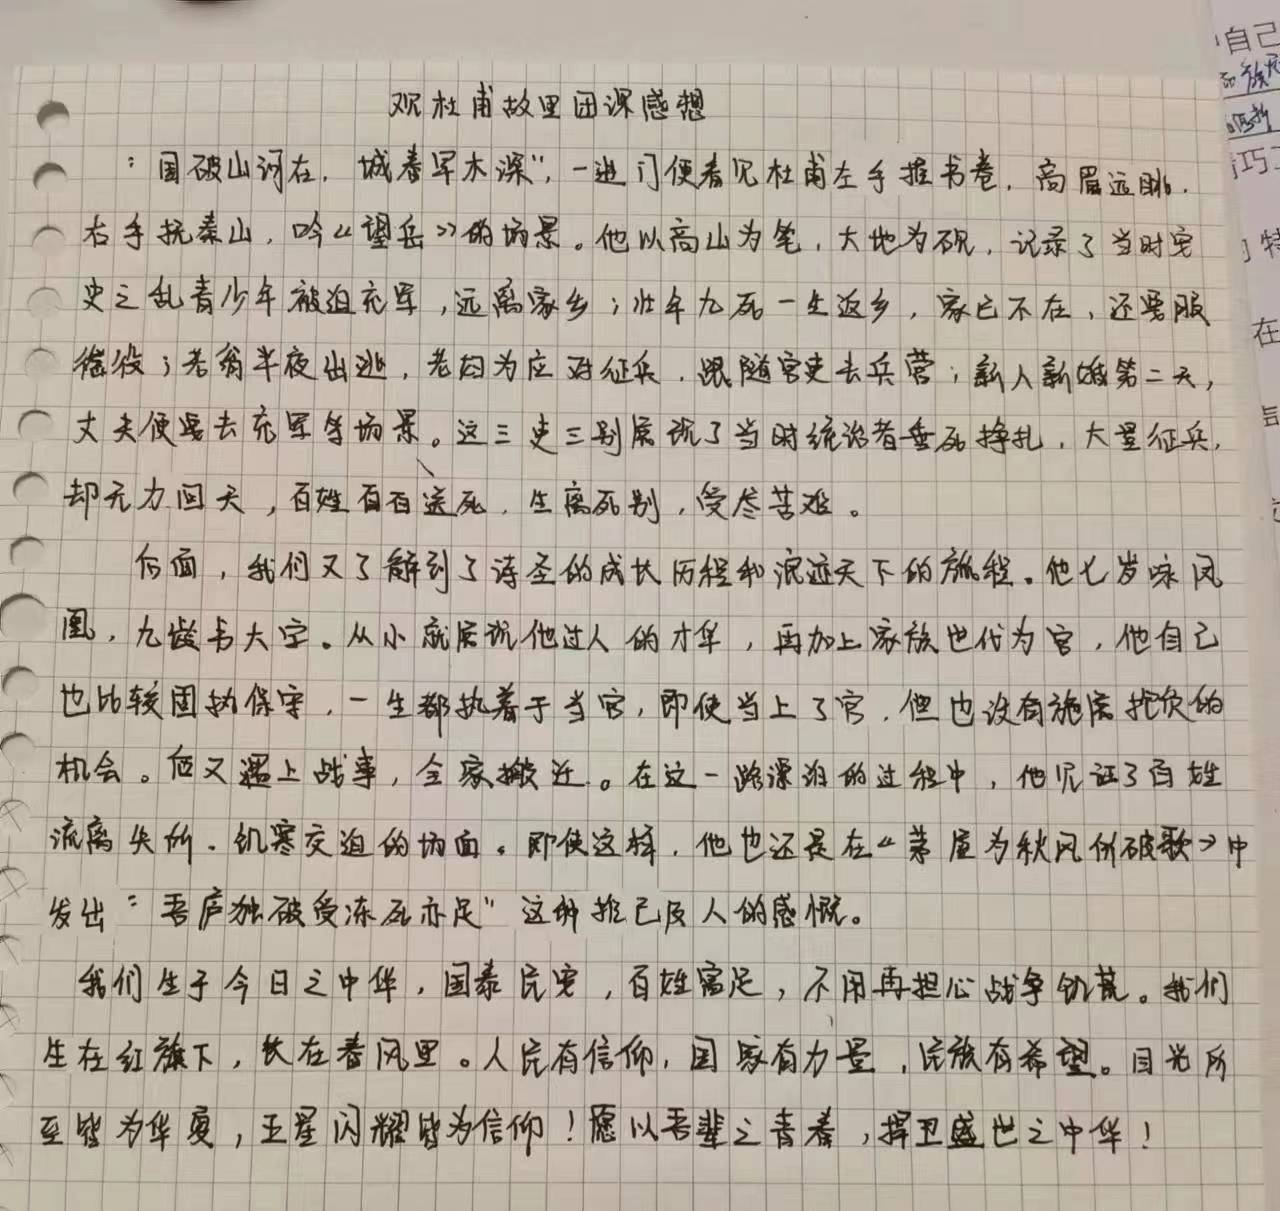 观杜甫故里团课感想
“国破山河在，城春草木深”，一进门便看见杜甫左手握书卷，高眉远眺，
右手抚泰山，吟《望岳》的场景。他以高山为笔，大地为砚，记录了当时安
史之乱青少年被迫充军，远离家乡；壮年九死一生返乡，家已不在，还要服
徭役；老翁半夜出逃，老妇为应对征兵，跟随官吏去兵营；新人新婚第二天，
丈夫便要去充军等场景。这三吏三别展现了当时统治者垂死挣扎，大量征兵，
却无力回天，百姓白白送死，生离死别，受尽苦难。
后面，我们又了解到了诗圣的成长历程和浪迹天下的旅程。他七岁咏凤
凰，九龄书大字。从小就展现他过人的才华，再加上家族世代为官，他自己
也比较固执保守，一生都执着于当官，即使当上了官，但也没有施展抱负的
机会。后又遇上战事，全家搬迁。在这一路漂泊的过程中，他见证了百姓
流离失所，饥寒交迫的场面。即使这样，他也还是在《茅屋为秋风所破歌》中
发出“吾庐独破受冻死亦足”这种推己及人的感慨。
我们生于今日之中华，国泰民安，百姓富足，不用再担心战争饥荒。我们
生在红旗下，长在春风里。人民有信仰，国家有力量，民族有希望。目光所
至皆为华夏，五星闪耀皆为信仰！愿以吾辈之青春，捍卫盛世之中华！
自己
巧
特
在